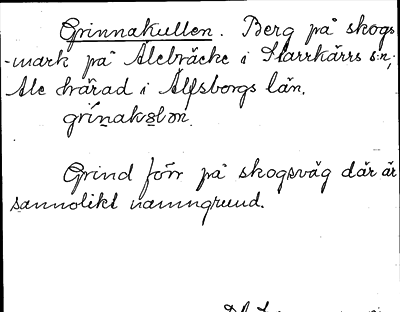 Grinnakullen. Berg på skogs
-mark på Alebräcke i Starrkärrs s:n,
Ale härad i Älfsborgs län.
grinakslən.
Grind förr på skogsväg där är
sannolikt namngrund.